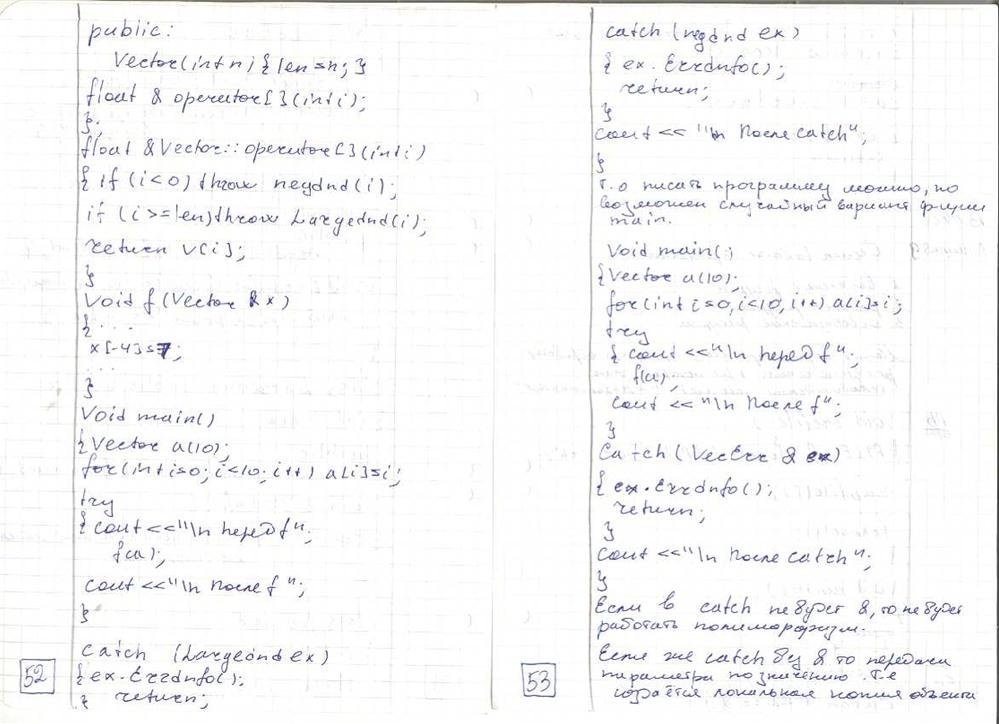 public:
Vector(int n) {len=n;}
float & operator[](int i);
};
float &Vector::operator[](int i)
{ if (i<0) throw negInd(i);
if (i>=len) throw LargeInd(i);
return v[i];
}
Void f (Vector & x)
{ ...
x[-4]=7;
...
}
Void main()
{Vector a(10);
for(int i=0; i<10; i++) a[i]=i;
try
{ cout <<"\n перед f";
f(a);
cout <<"\n После f";
}
catch (LargeInd ex)
{ex.ErrInfo();
} return;
52
catch (negInd ex)
{ ex.ErrInfo();
return;
}
cout << "\n После catch";
}
Т.о писать программу можно, но
возможен случайный вариант функции
main.
Void main()
{Vector a(10);
for(int i=0, i<10, i++) a[i]=i;
try
{ cout <<"\n перед f";
f(a)
cout << "\n После f";
}
Catch (VecErr & ex)
{ ex.ErrInfo();
return;
}
cout <<"\n После catch";
}
Если в catch не будет &, то не будет
работать полиморфизм.
Если же catch без & то передача
параметра по значению. Т.е
создаётся локальная копия объекта
53